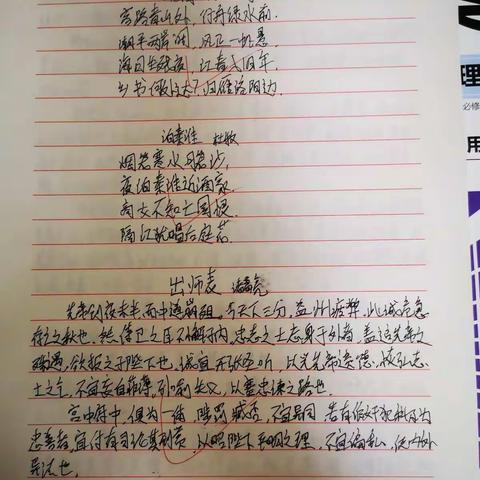 客路青山外,行舟绿水前.
潮平两岸阔,风正一帆悬.
海日生残夜,江春入旧年.
乡书何处达?归雁洛阳边.
泊秦淮 杜牧
烟笼寒水月笼沙,
夜泊秦淮近酒家.
商女不知亡国恨,
隔江犹唱后庭花.
出师表 诸葛亮
先帝创业未半,而中道崩殂,今天下三分,益州疲弊,此诚危急
存亡之秋也.然侍卫之臣不懈于内,忠志之士忘身于外者,盖追先帝之
殊遇,欲报之于陛下也.诚宜开张圣听,以光先帝遗德,恢弘志
士之气,不宜妄自菲薄,引喻失义,以塞忠谏之路也.
宫中府中,俱为一体,陟罚臧否,不宜异同.若有作奸犯科及为
忠善者,宜付有司论其刑赏,以昭陛下平明之理,不宜偏私,使内外
异法也.
理
必修
用